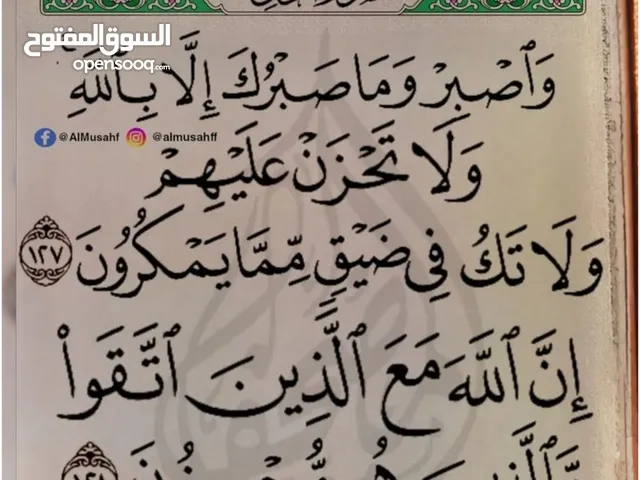 السوق المفتوح
opensooq.com
وَٱصْبِرْ وَمَا صَبْرُكَ إِلَّا بِٱللَّهِ
@AlMusahf @almusahff
وَلَا تَحْزَنْ عَلَيْهِمْ
وَلَا تَكُ فِى ضَيْقٍ مِّمَّا يَمْكُرُونَ ١٢٧
إِنَّ ٱللَّهَ مَعَ ٱلَّذِينَ ٱتَّقَوا۟